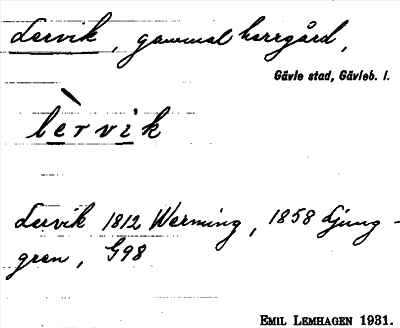 Lervik, gammal herrgård,
Gävle stad, Gävleb. l.
lèrvik
Lervik 1812 Werming, 1858 Ljung-
gren, G98
EMIL LEMHAGEN 1931.